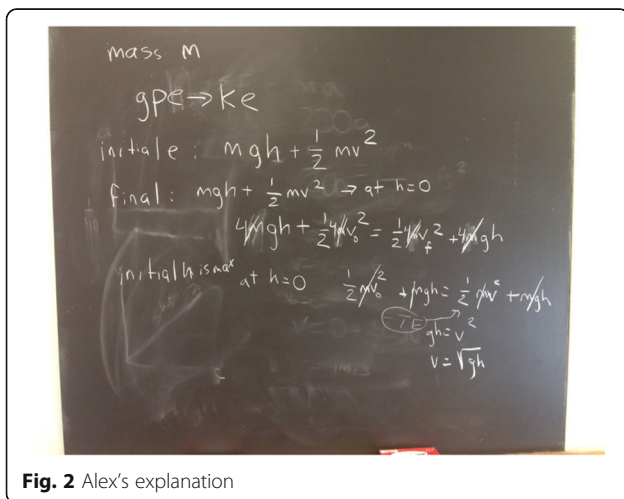 mass M
gpe → ke
initial e: mgh + 1/2 mv²
final: mgh + 1/2 mv² → at h=0
4mgh + 1/2 4mv₀² = 1/2 4mv_f² + 4mgh
initial h is max at h=0 1/2 mv₀² + mgh = 1/2 mv² + mgh
TE gh = v²
v = √gh
Fig. 2 Alex's explanation